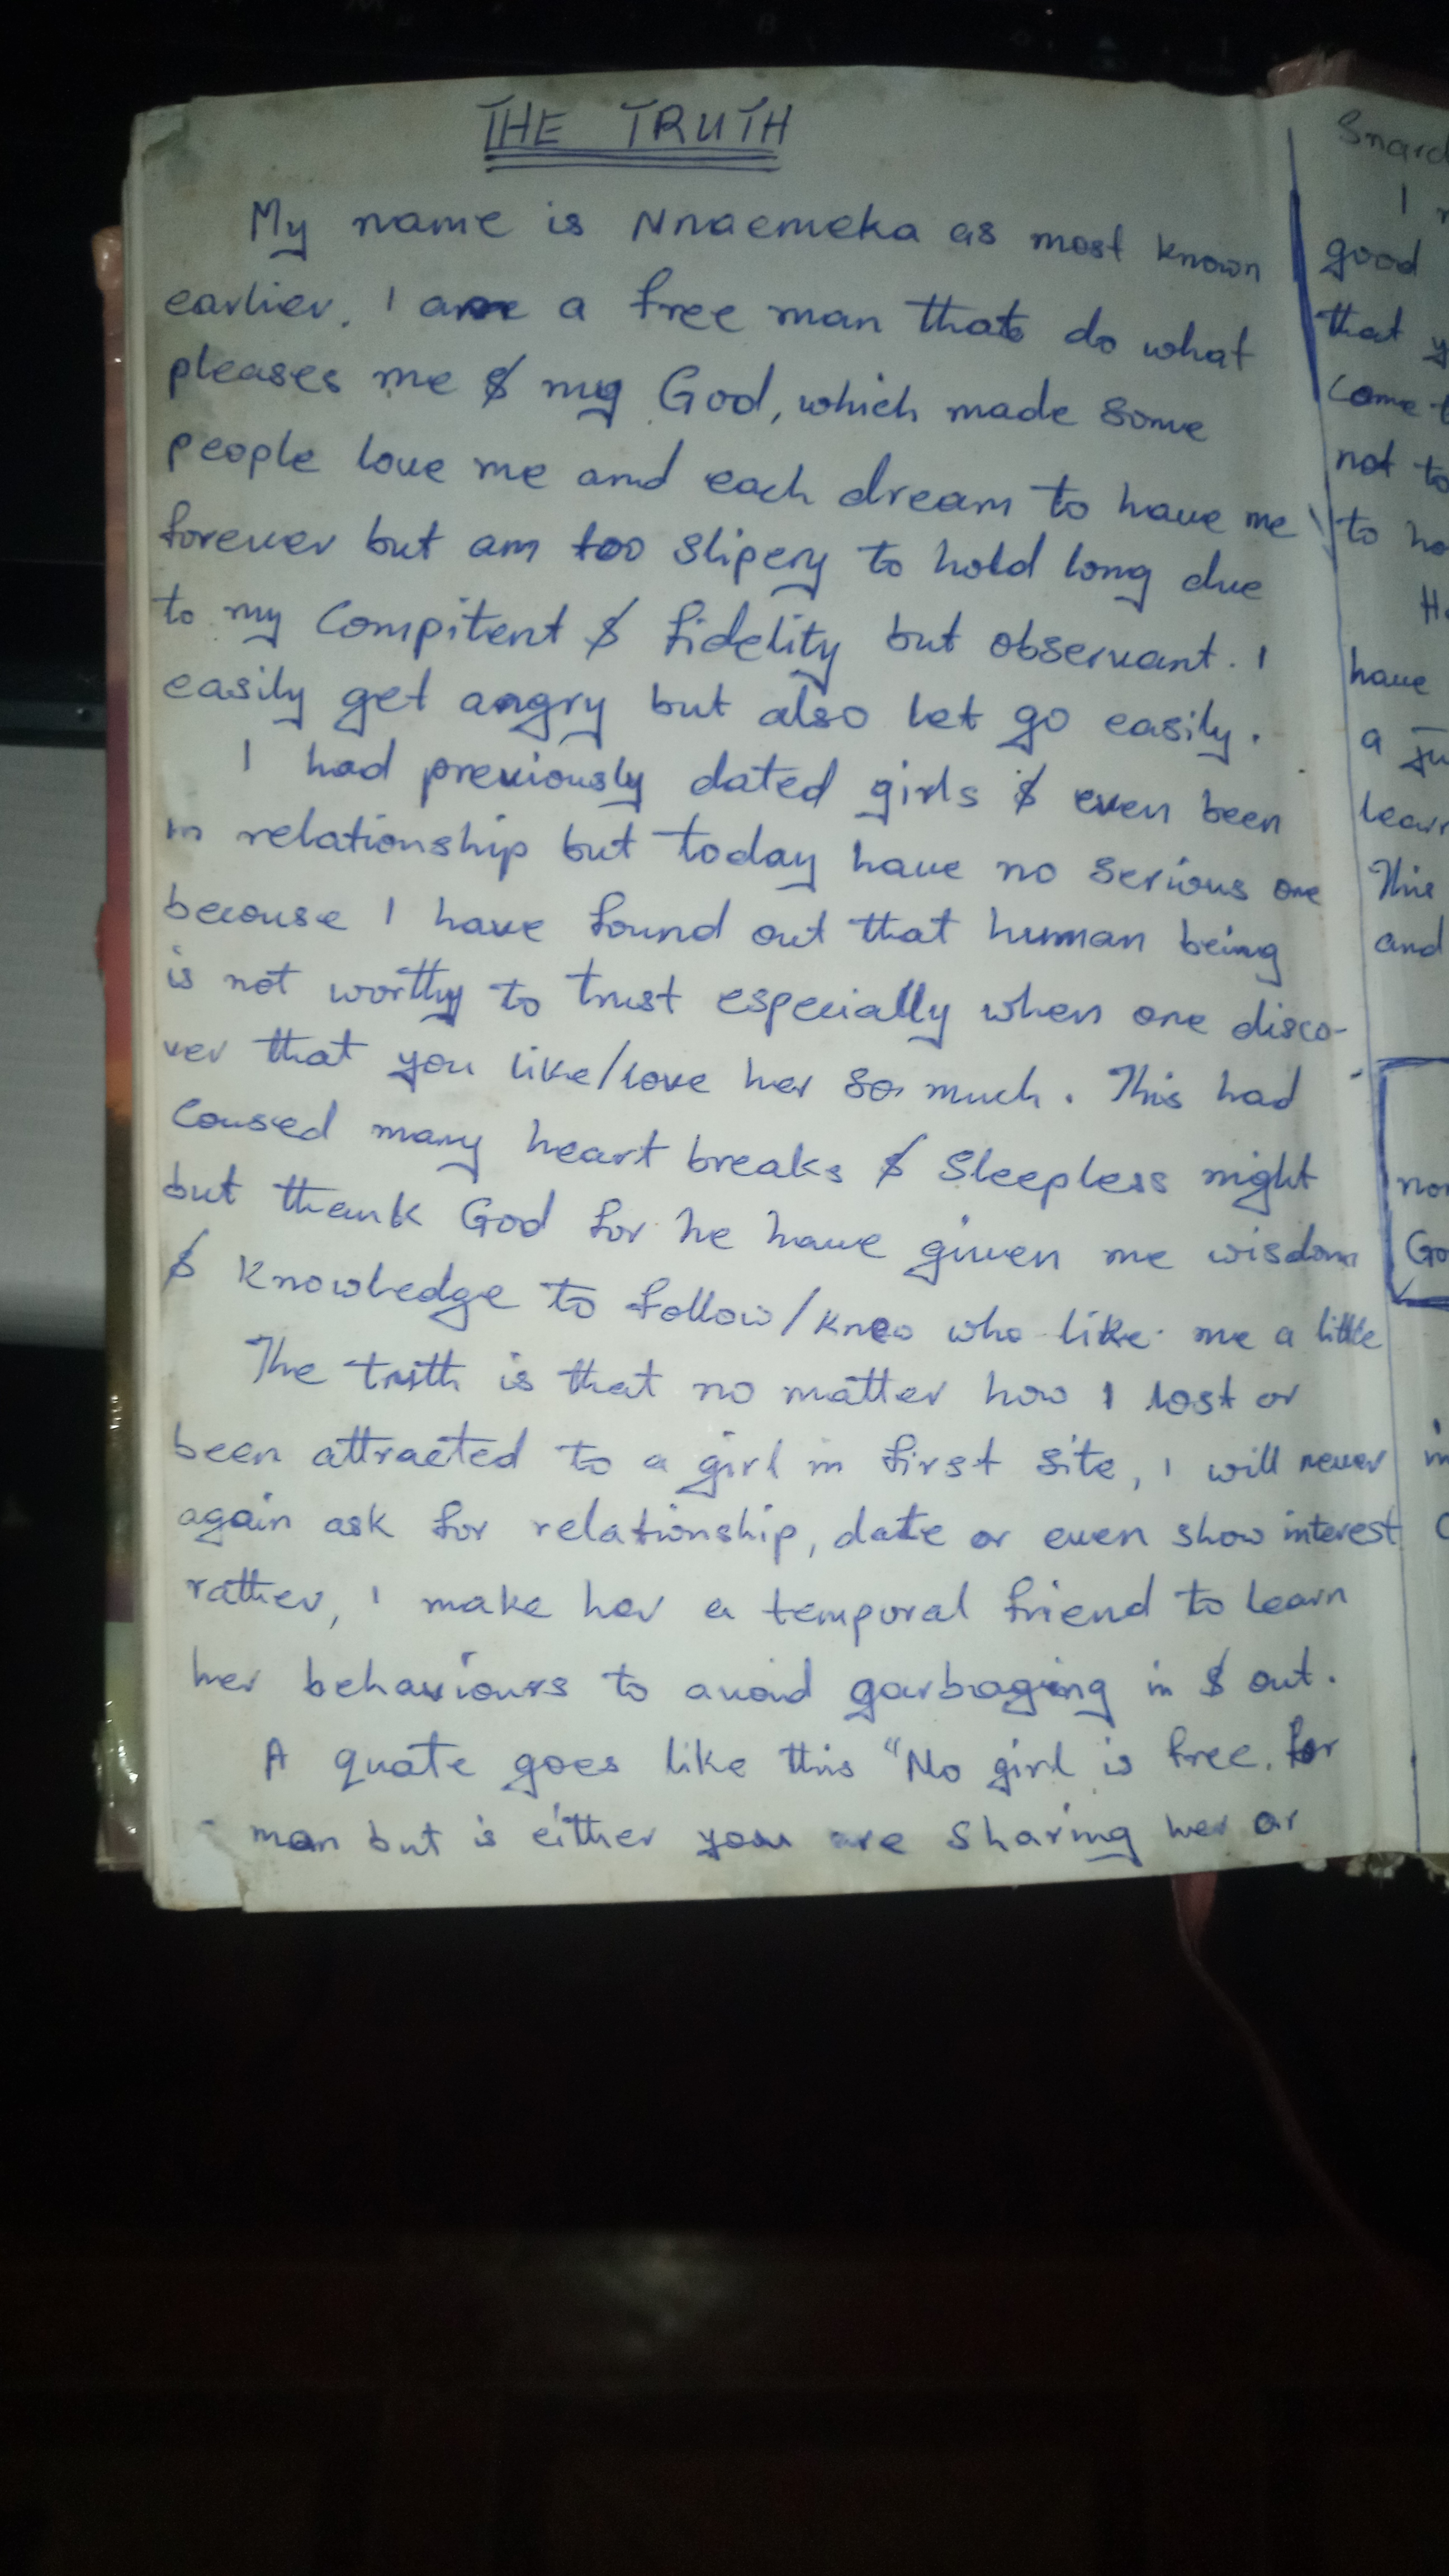 THE TRUTH
My name is Nnaemeka as most known
earlier. I am a free man that do what
pleases me & my God, which made some
people love me and each dream to have me
forever but am too slipery to hold long due
to my Compitent & fidelity but observant. I
easily get angry but also let go easily.
I had previously dated girls & even been
in relationship but today have no serious one
because I have found out that human being
is not worthy to trust especially when one disco-
ver that you like/love her so much. This had
caused many heart breaks & Sleepless night
but thank God for he have given me wisdom
& Knowledge to follow/know who like me a little
The truth is that no matter how I lost or
been attracted to a girl in first site, I will never
again ask for relationship, date or even show interest
rather, I make her a temporal friend to learn
her behaviours to avoid garbaging in & out.
A quote goes like this "No girl is free for
man but is either you are sharing her or
good
that
not to
to
have
a
This
and